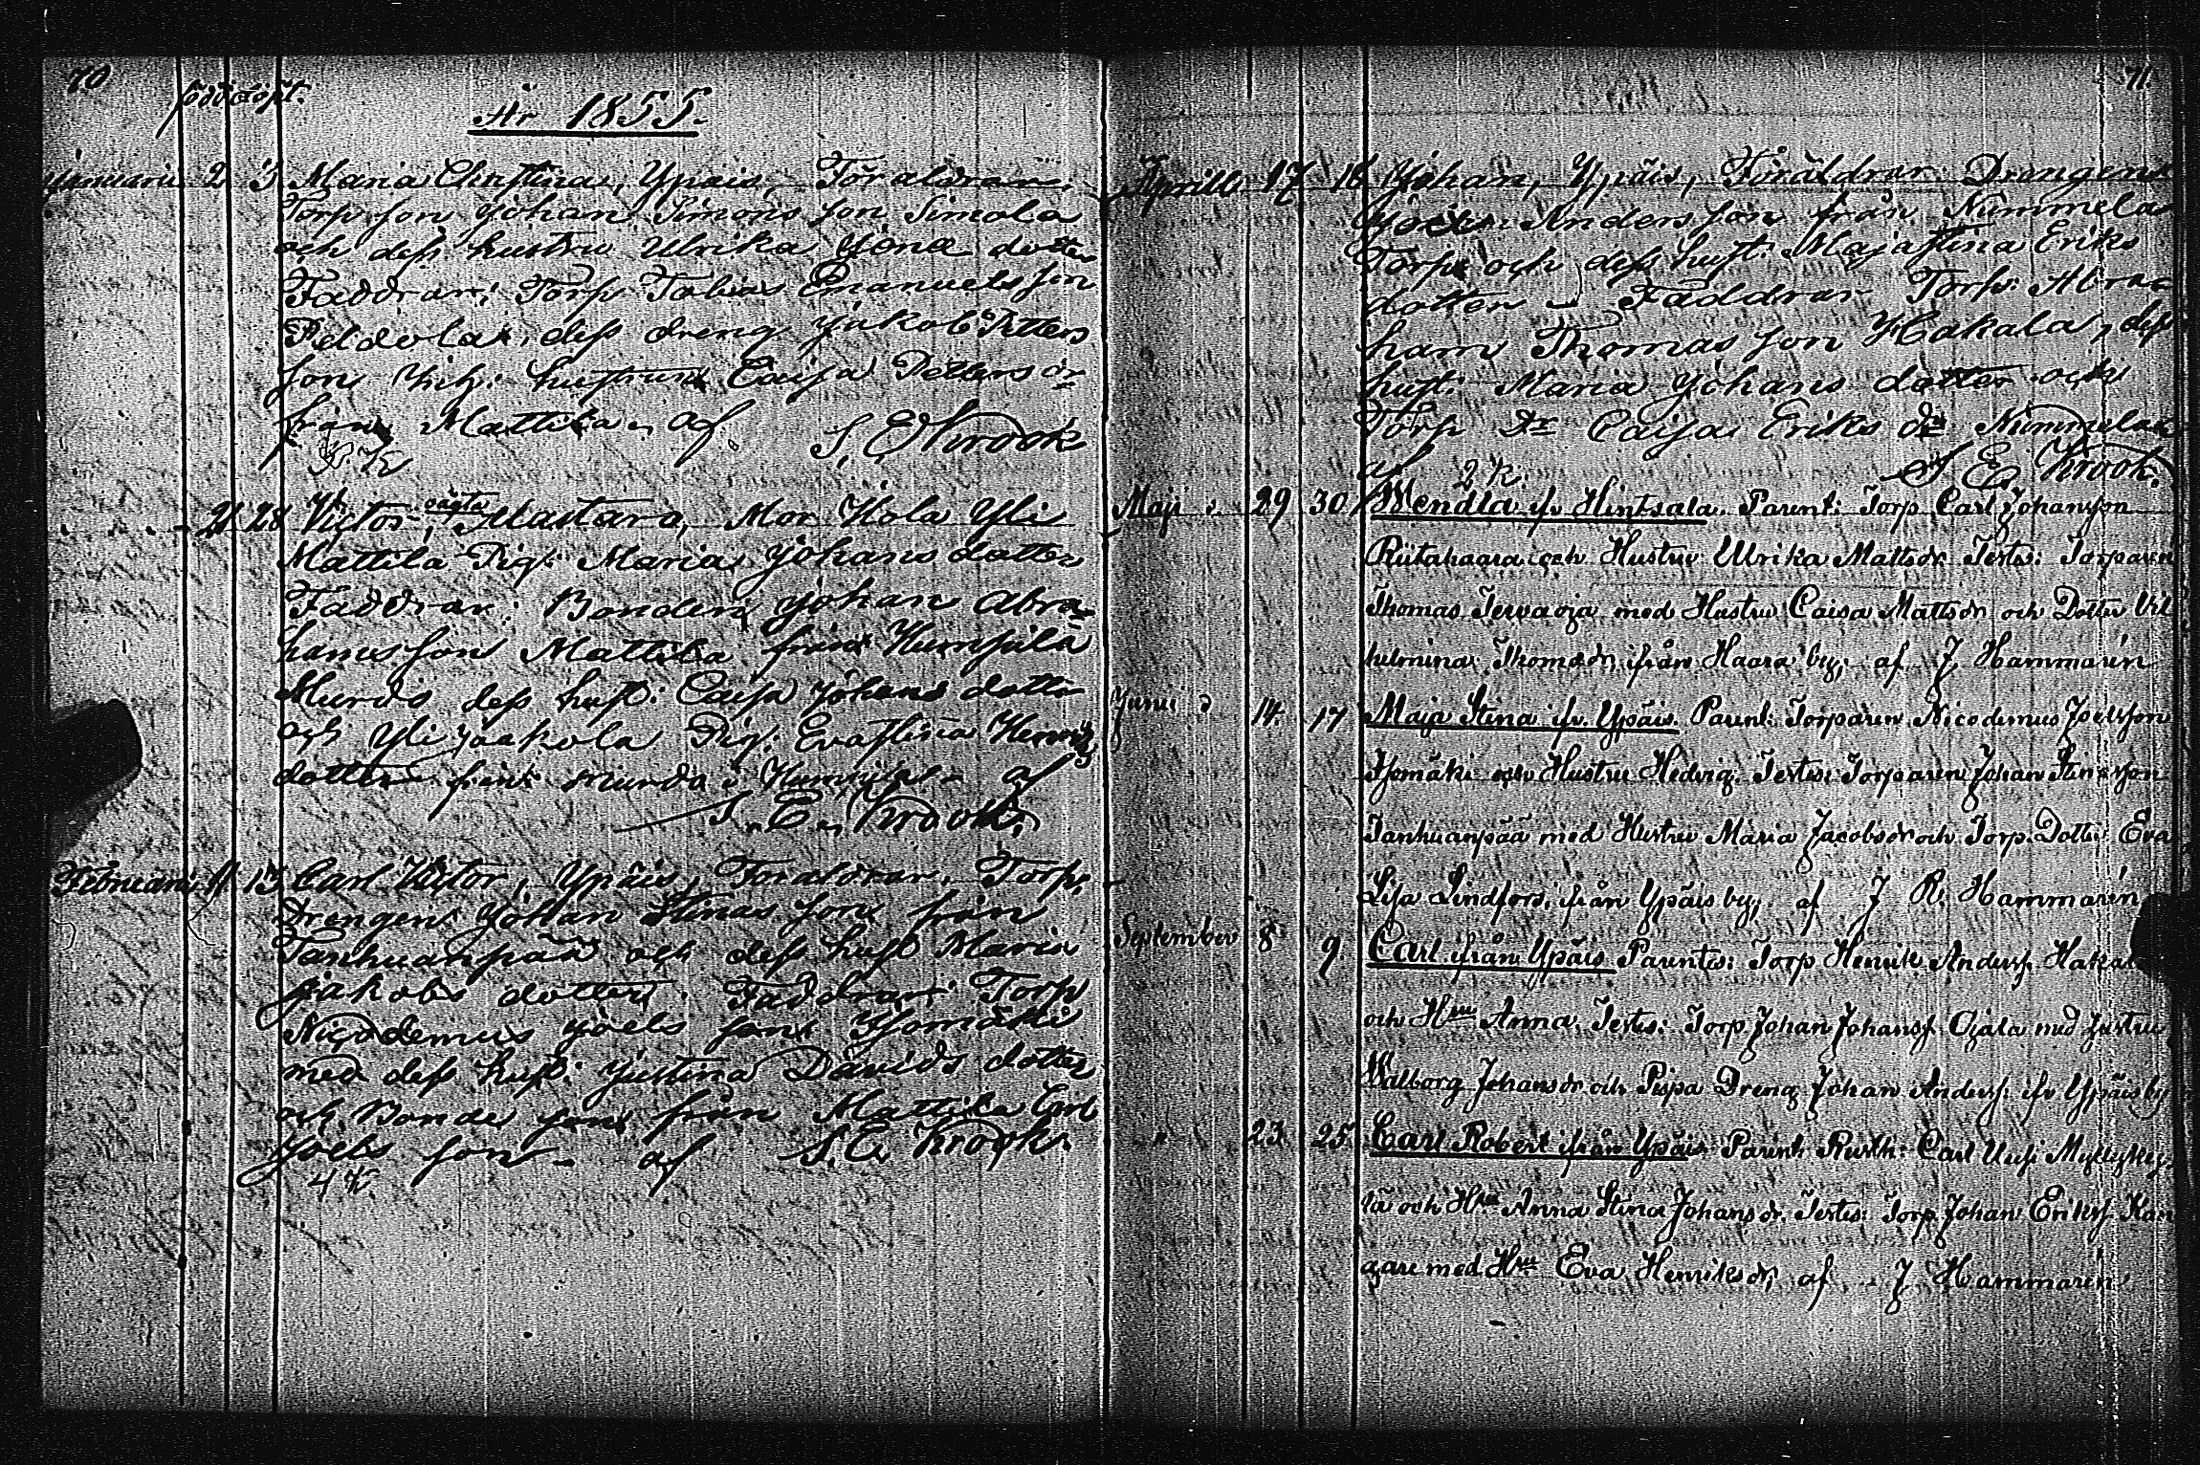 70
född döpt.
År 1855.
Januarii 2 3 Maria Christina, Ypäis, Föräldrar,
Torp son Johan Simons son Simola
och dess hustru Ulrika Jona dotter
Faddrar: Torp Tobias Emanuels son
Peldola, dess dreng Jakob Petters
son hustrun Caisa Petters dr
från Mattila, af S. E. Krook
21 28 Victor oägta Mastara, Mor Kola Yli
Mattila Pig. Maria Johans dotter
Faddrar: Bonden Johan Abra-
hams son Mattila från Humpila
Murdo dess hust: Caisa Johans dotter
och Yli Jaakola Pig. Evastina Henriks
dotter från Murdo i Humpila af
S. E. Krook.
Februarii 11 13 Carl Victor, Ypäis, Föräldrar. Torp.
Drengen Johan Stinas son från
Tanhuanpää och dess hust Maria
Jakobs dotter. Faddrar: Torp
Nicodemus Joels son Isomäki
med dess hust: Justina Davids dotter
och Bonde son från Mattila Carl
Joels son af S. E. Krook.
4 K.
71.
Aprill 17 18 Johan, Ypäis, Föräldrar Drengen
Anders son från Nummela
Torp och dess hust: Maja Stina Eriks
dotter Faddrar Torp: Abra-
ham Thomas son Hakala, dess
hust: Maria Johans dotter och
Torp Dr Caisa Eriks dr Nummela
af 2 K. S E. Krook.
Maji 29 30 Wendla ifr Hintsala. Parent: Torp Carl Johansson
Riitahaara och Hustru Ulrika Mattsdr Testes: Torparen
Thomas Tervaoja med Hustru Caisa Mattsdr och Dotter Vil
helmina Thomasdr, ifrån Haara by, af J Hammarén
Junii 14. 17 Maja Stina ifr. Ypäis. Parent: Torparen Nicodemus Joelsson
Isomäki och Hustru Hedvig. Testes: Torparen Johan Stinasson
Tanhuanpää med Hustru Maria Jacobsdr och Torp. Dotter Eva
Lisa Lindfors, ifrån Ypäis by, af J R. Hammarén
September 8 9 Carl ifrån Ypäis Parentes: Torp Henrik Anderss. Haka
och Hru Anna. Testes: Torp. Johan Johanss. Ojala med Hustru
Walborg Johansdr och Pispa Dreng Johan Anderss: ifr Ypäis by
" 23 25 Carl Robert ifrån Ypäis Parent: Rusth: Carl Uusi Myllyky
lä och Hru Anna Stina Johans dr. Testes: Torp. Johan Erikss. Kan
gare med Hru Eva Henriksdr, af J Hammarén